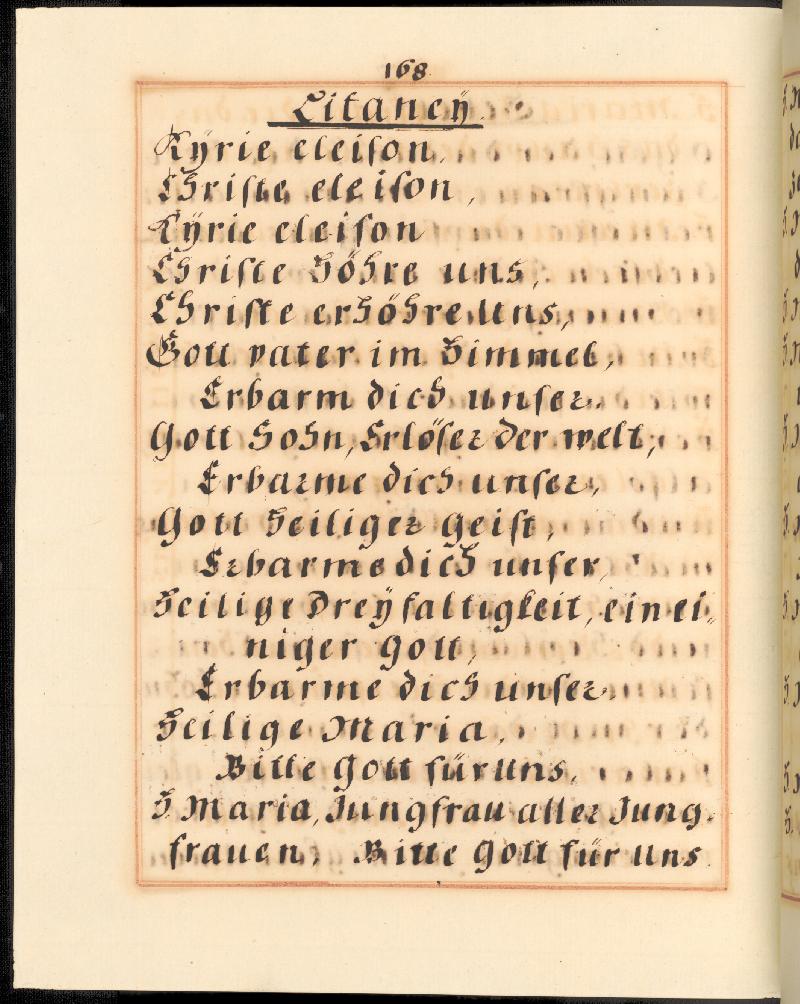 168
Litaneÿ.
Kÿrie eleiſon,
Chriſte eleiſon,
Kÿrie eleiſon
Chriſte höhre uns,
Chriſte erhöhre uns,
Gott vater im Himmel,
Erbarm dich unſer.
Gott Sohn, Erlöſer der welt,
Erbarme dich unſer,
Gott Heiliger geiſt,
Erbarme dich unſer,
Heilige Dreÿfaltigkeit, ein ei⸗
niger Gott,
Erbarme dich unſer
Heilige Maria,
Bitte Gott für uns,
H. Maria, Jungfrau aller Jung⸗
frauen, Bitte Gott für uns